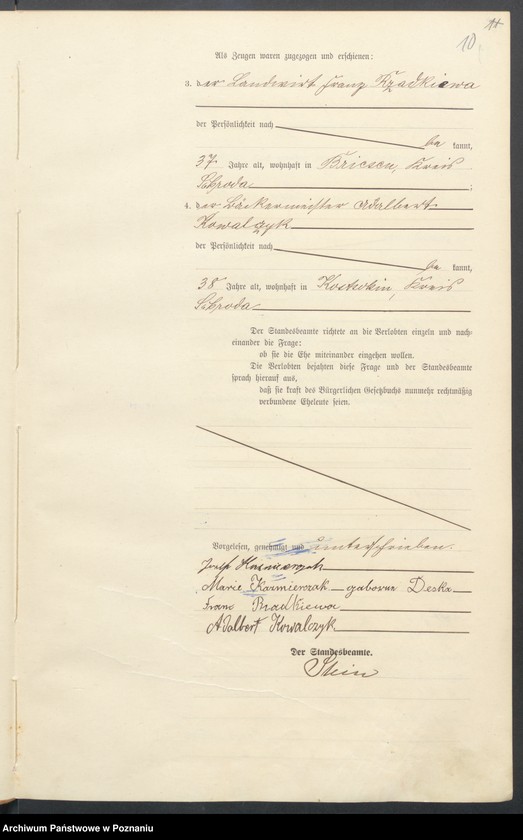 10
Als Zeugen waren zugezogen und erschienen:
3. der Landwirt Franz Rzadkiewa
der Persönlichkeit nach
be kannt,
37 Jahre alt, wohnhaft in Briesen, Kreis
Schroda ;
4. der Bäckermeister Adalbert
Kowalczyk
der Persönlichkeit nach
be kannt,
38 Jahre alt, wohnhaft in Kostschin, Kreis
Schroda
Der Standesbeamte richtete an die Verlobten einzeln und nach-
einander die Frage:
ob sie die Ehe miteinander eingehen wollen.
Die Verlobten bejahten diese Frage und der Standesbeamte
sprach hierauf aus,
daß sie kraft des Bürgerlichen Gesetzbuchs nunmehr rechtmäßig
verbundene Eheleute seien.
Vorgelesen, genehmigt und unterschrieben.
Josef Kazmierczak
Marie Kazmierczak geborene Deska
Franz Rzadkiewa
Adalbert Kowalczyk
Der Standesbeamte.
Stein
Archiwum Państwowe w Poznaniu